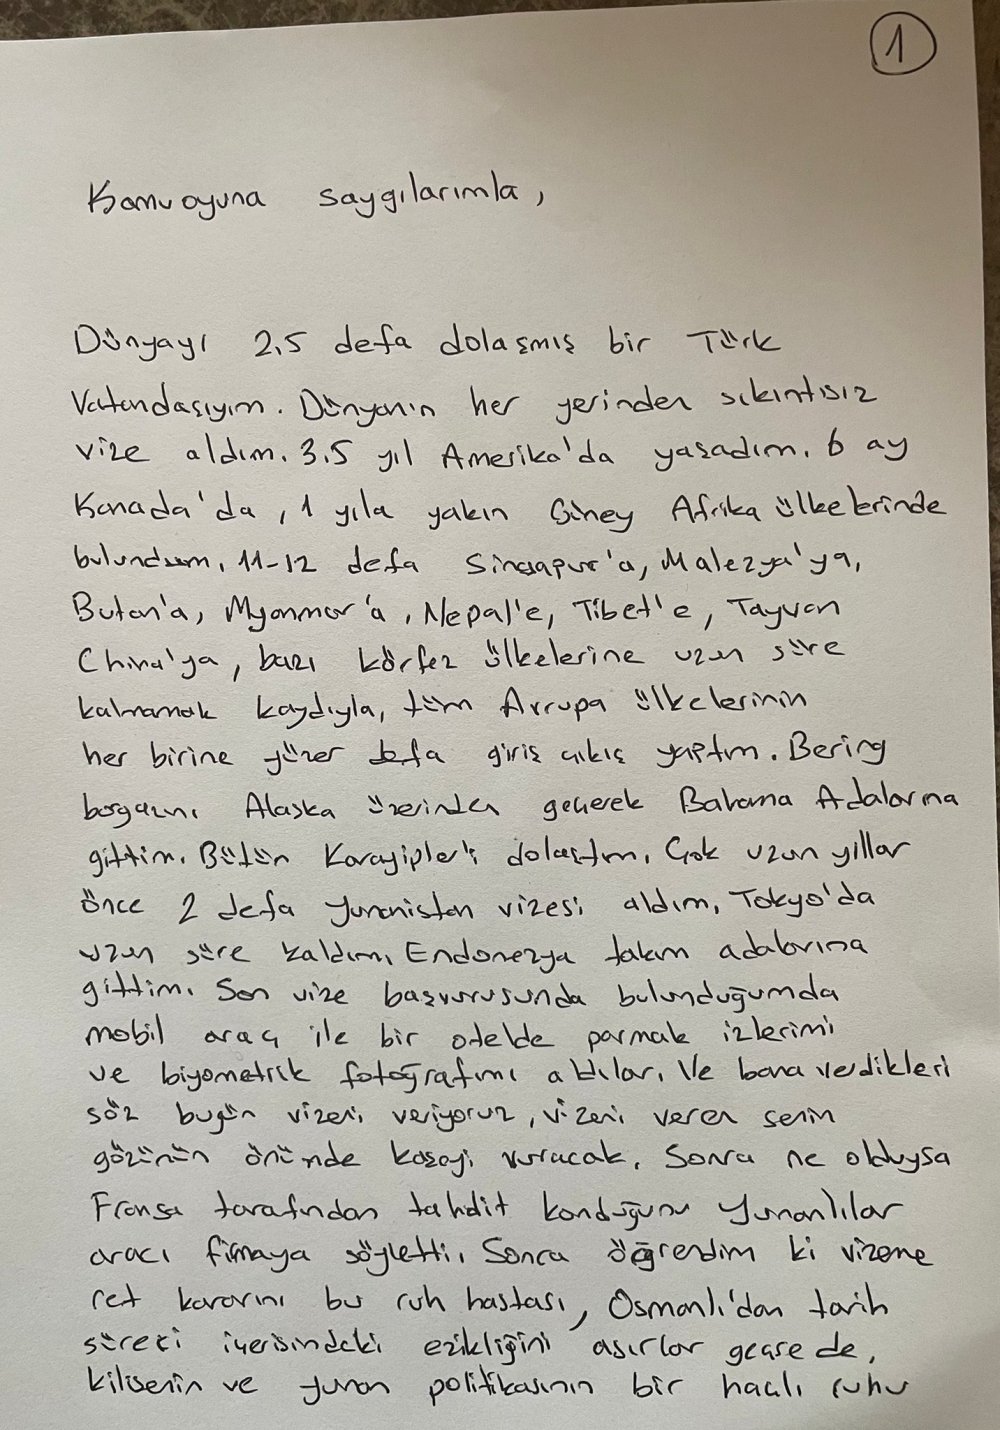 1
Kamuoyuna saygılarımla,
Dünyayı 2,5 defa dolaşmış bir Türk
Vatandaşıyım. Dünyanın her yerinden sıkıntısız
vize aldım. 3,5 yıl Amerika'da yaşadım. 6 ay
Kanada'da, 1 yıla yakın Güney Afrika ülkelerinde
bulundum, 11-12 defa Singapur'a, Malezya'ya,
Butan'a, Myanmar'a, Nepal'e, Tibet'e, Tayvan
China'ya, bazı körfez ülkelerine uzun süre
kalmamak kaydıyla, tüm Avrupa ülkelerinin
her birine yüzer defa giriş çıkış yaptım. Bering
boğazını Alaska üzerinden geçerek Bahama Adalarına
gittim. Bütün Karayipler'i dolaştım. Çok uzun yıllar
önce 2 defa Yunanistan vizesi aldım, Tokyo'da
uzun süre kaldım, Endonezya takım adalarına
gittim. Son vize başvurusunda bulunduğumda
mobil araç ile bir otelde parmak izlerimi
ve biyometrik fotoğrafımı aldılar. Ve bana verdikleri
söz bugün vizeni veriyoruz, vizeni veren senin
gözünün önünde kaşeyi vuracak. Sonra ne olduysa
Fransa tarafından tahdit konduğunu Yunanlılar
aracı firmaya söyletti. Sonra öğrendim ki vizeme
ret kararını bu ruh hastası, Osmanlı'dan tarih
süreci içerisindeki ezikliğini asırlar geçse de,
kilisenin ve yunan politikasının bir haçlı ruhu